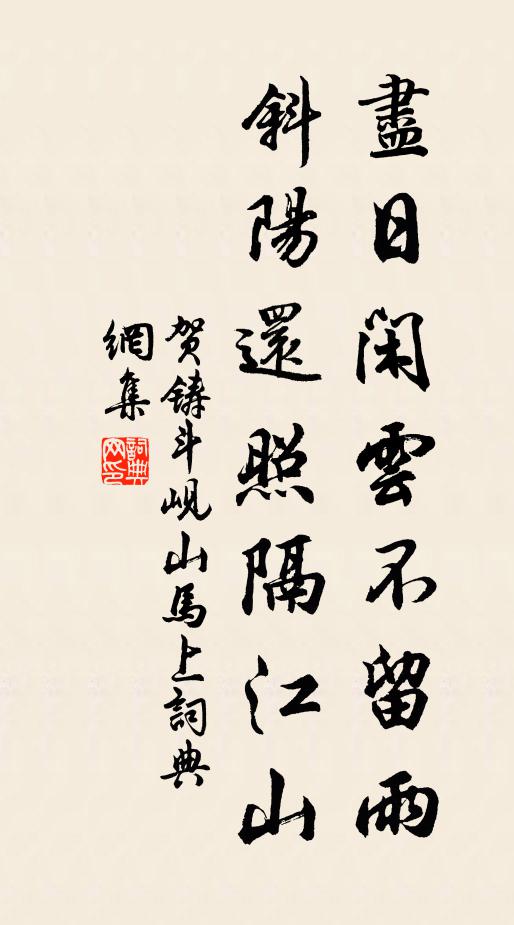 盡日閑雲不留雨
斜陽還照隔江山
賀鑄斗峴山馬上詞典
網集
詞典网印